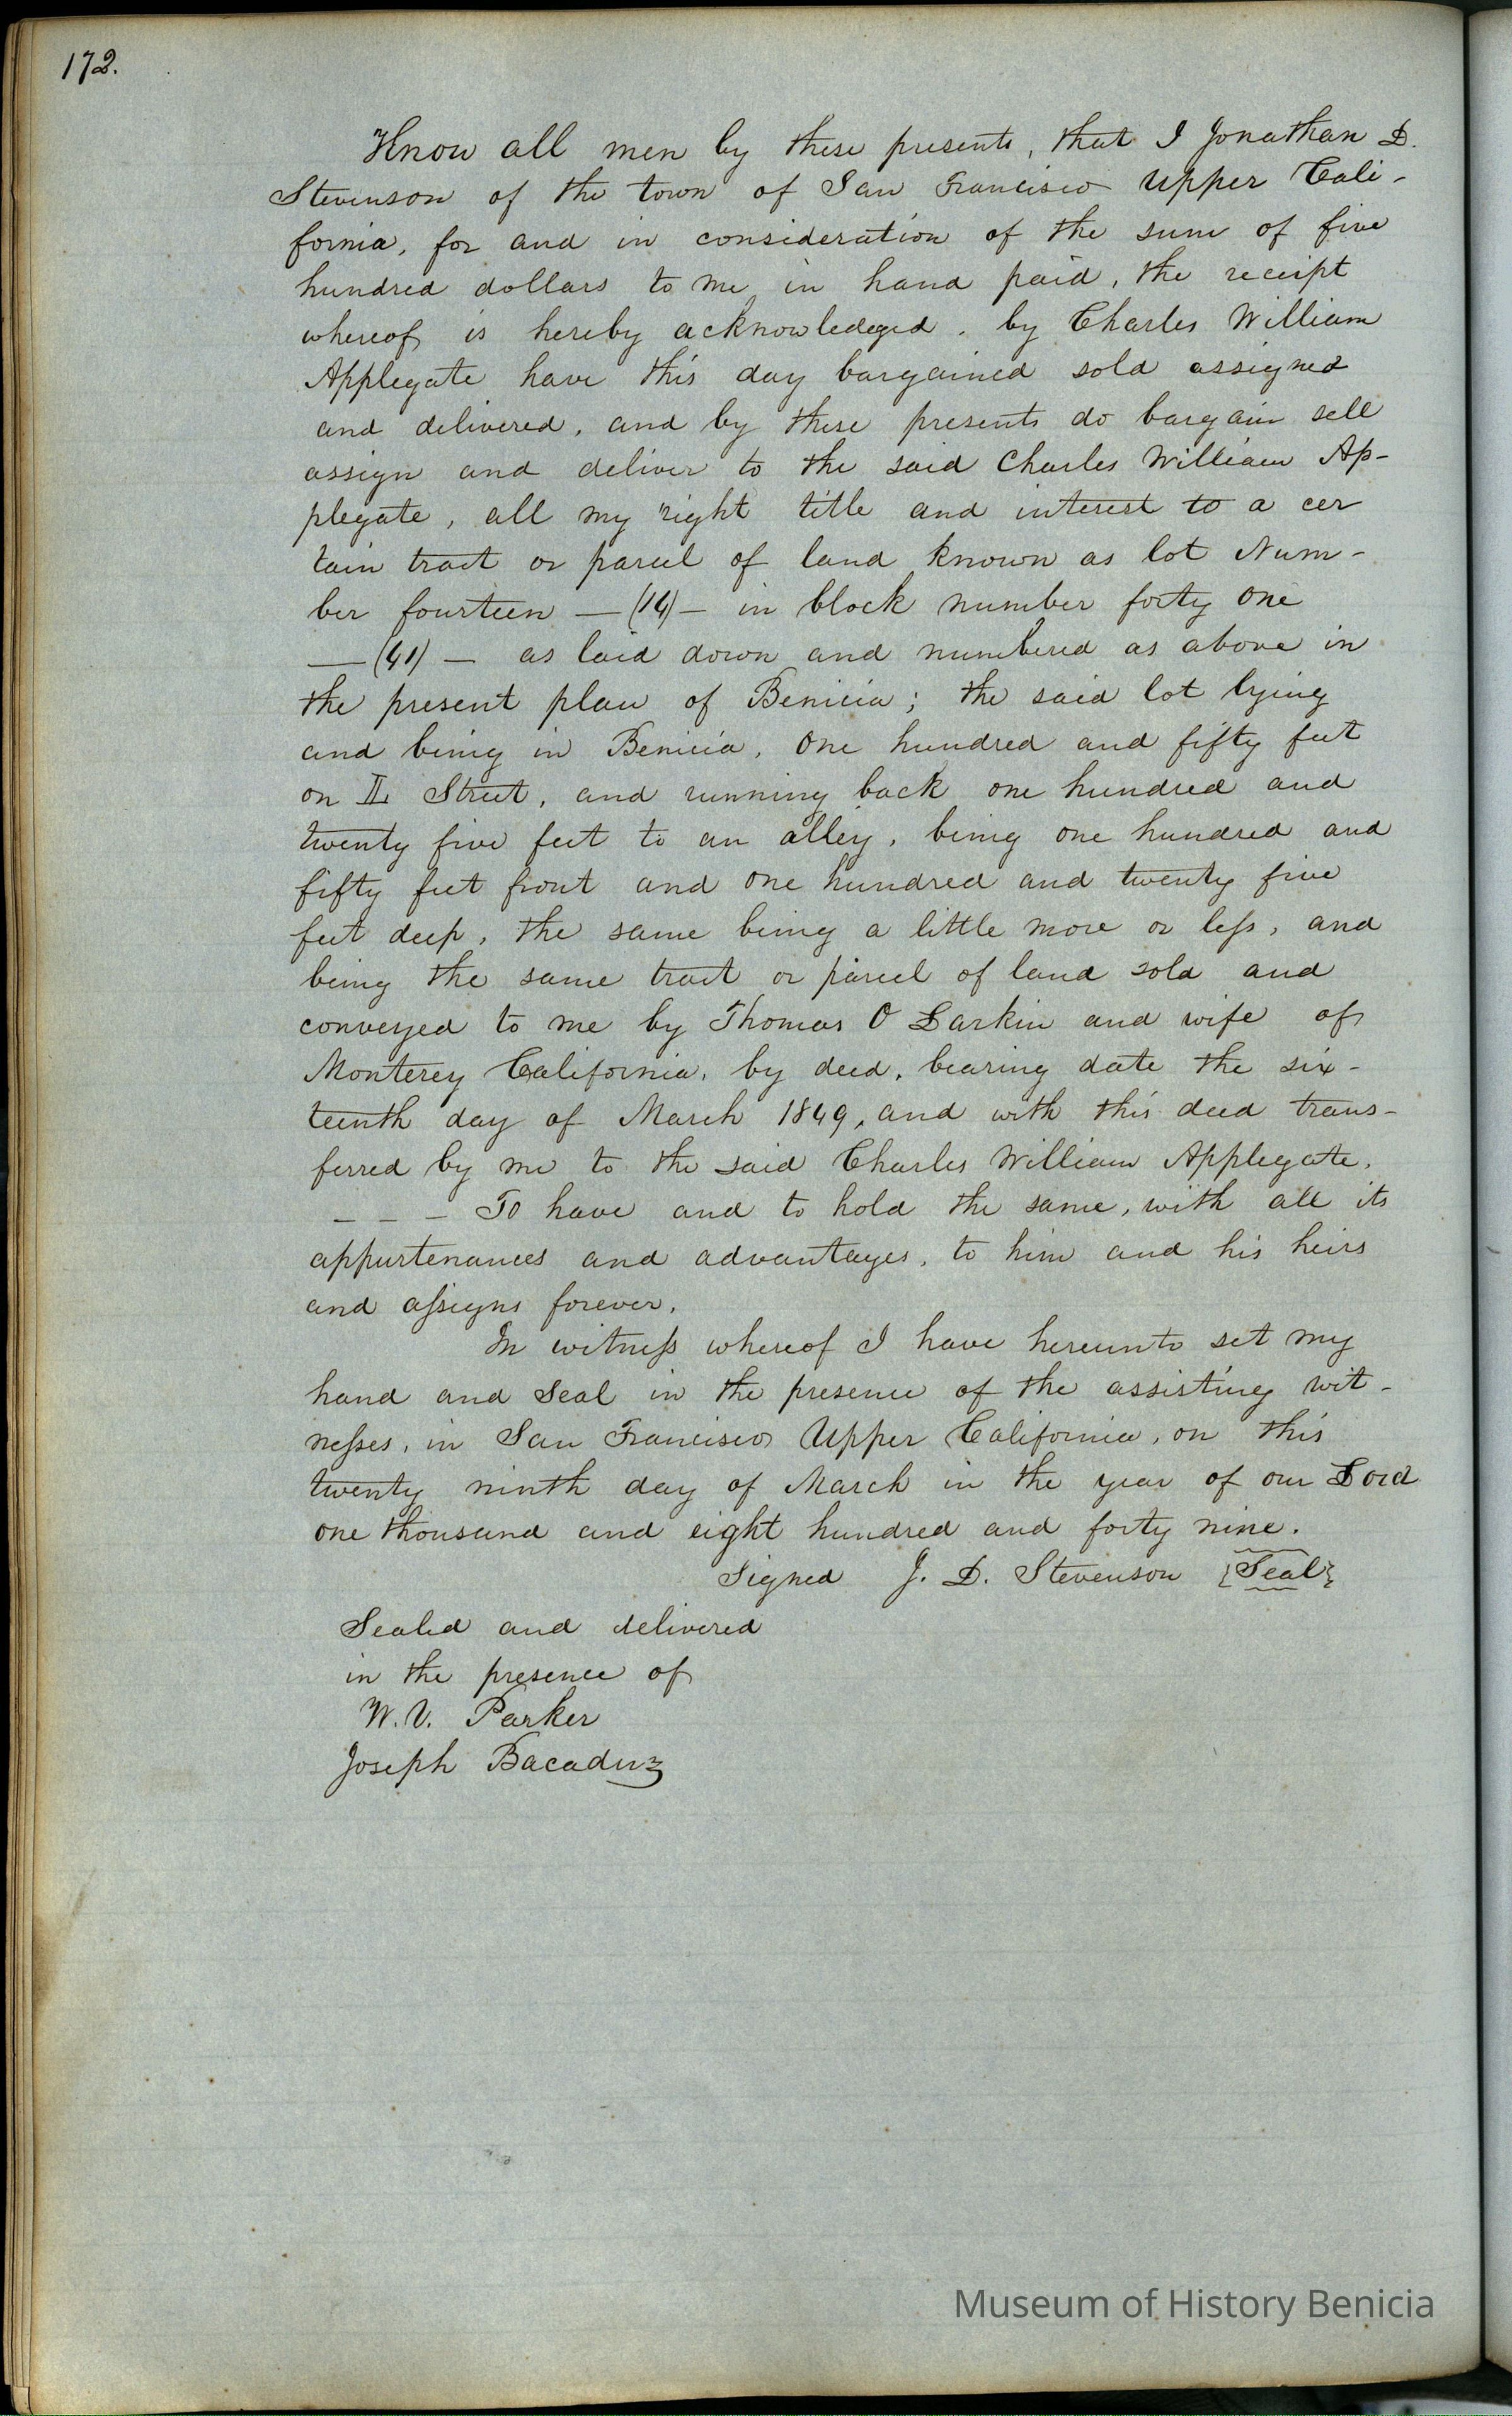 172.
Know all men by these presents, that I Jonathan D.
Stevenson of the town of San Francisco Upper Cali-
fornia, for and in consideration of the sum of five
hundred dollars to me in hand paid, the receipt
whereof is hereby acknowledeged. by Charles William
Applegate have this day bargained sold assigned
and delivered, and by these presents do bargain sell
assign and deliver to the said Charles William Ap-
plegate, all my right title and interest to a cer
tain tract or parcel of land known as lot Num-
ber fourteen — (14) — in block number forty one
— (41) — as laid down and numbered as above in
the present plan of Benicia; the said lot lying
and being in Benicia, One hundred and fifty feet
on Street, and running back one hundred and
twenty five feet to an alley, being one hundred and
fifty feet front and one hundred and twenty five
feet deep, the same being a little more or less, and
being the same tract or parcel of land sold and
conveyed to me by Thomas O Larkin and wife of
Monterey California, by deed, bearing date the six-
teenth day of March 1849, and with this deed trans-
ferred by me to the said Charles William Applegate.
– – – To have and to hold the same, with all its
appurtenances and advantages, to him and his heirs
and assigns forever.
In witness whereof I have hereunto set my
hand and Seal in the presence of the assisting wit-
nesses, in San Francisco Upper California, on this
twenty ninth day of March in the year of our Lord
one thousand and eight hundred and forty nine.
Signed J. D. Stevenson {Seal}
Sealed and delivered
in the presence of
W. V. Parker
Joseph
Museum of History Benicia